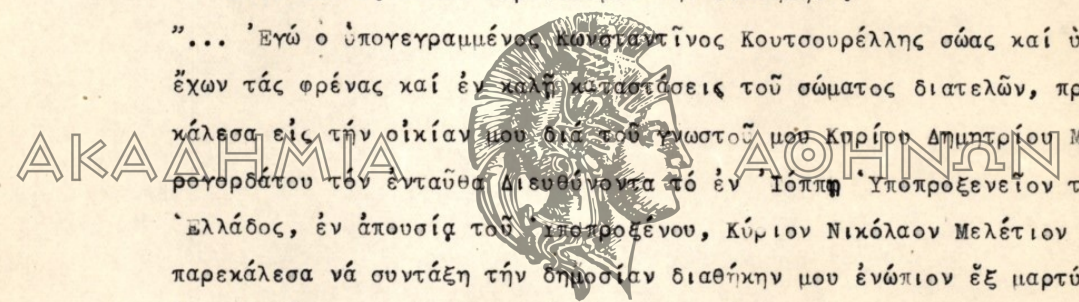 "... Ἐγώ ο ὑπογεγραμμένος Κωνσταντῖνος Κουτσουρέλλης σώας καί ὑ
ἔχων τάς φρένας καί ἐν καλῇ καταστάσεις τοῦ σώματος διατελῶν, πρ
κάλεσα εἰς τήν οἰκίαν μου διά τοῦ γνωστοῦ μου Κυρίου Δημητρίου Μ
ΑΚΑΔΗΜΙΑ ΑΘΗΝΩΝ
ρογορδάτου τόν ἐνταῦθα Διευθύνοντα τό ἐν Ἰόππῃ Ὑποπροξενεῖον τ
Ἑλλάδος, ἐν ἀπουσίᾳ τοῦ Ὑποπροξένου, Κύριον Νικόλαον Μελέτιον
παρεκάλεσα νά συντάξη τήν δημοσίαν διαθήκην μου ἐνώπιον ἕξ μαρτύ